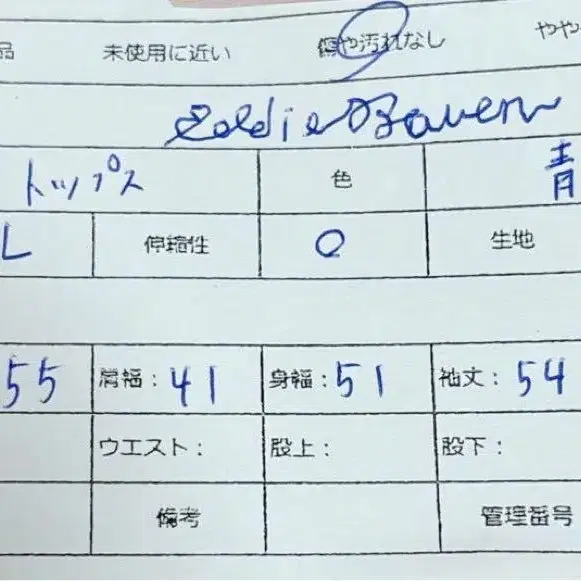 品 未使用に近い 傷や汚れなし やや
Eddie Bauer
トップス 色 青
L 伸縮性 ○ 生地
55 肩幅: 41 身幅: 51 袖丈: 54
ウエスト: 股上: 股下:
備考 管理番号